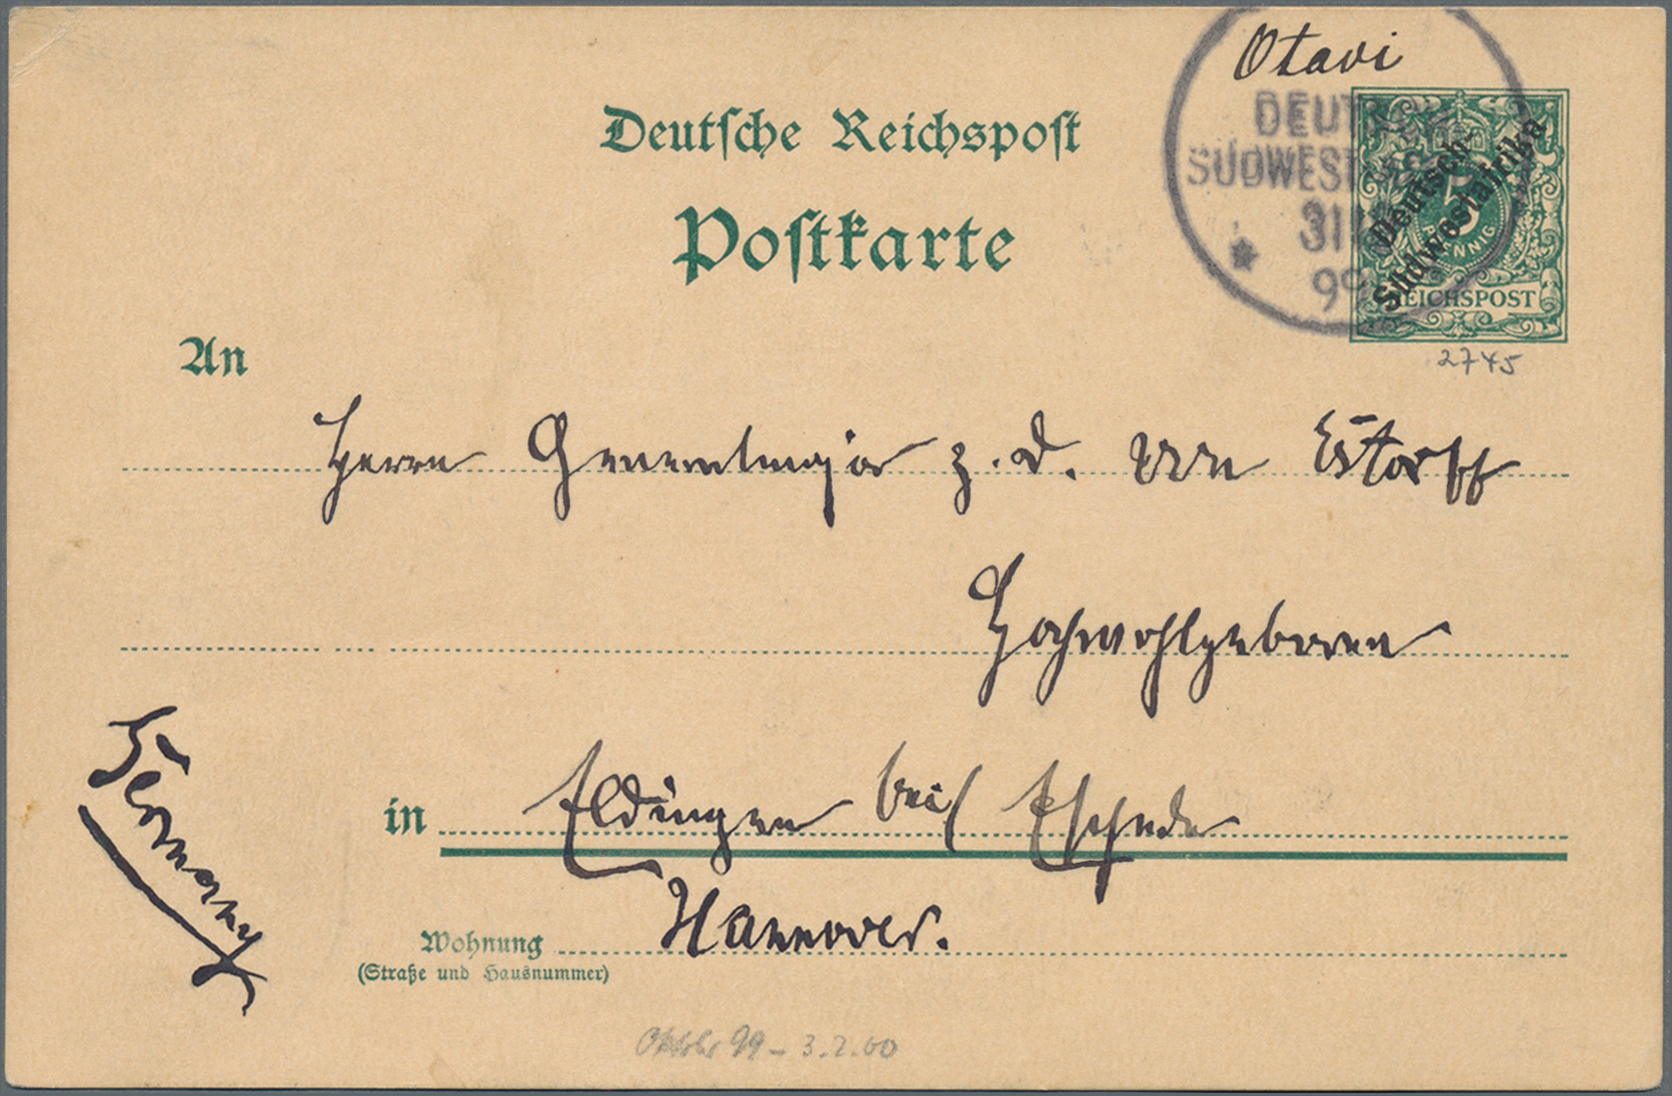 Otavi
DEUTSCH
SÜDWESTAFRIKA
31
99
Deutsch-
Südwestafrika
5
PFENNIG
REICHSPOST
2745
Deutſche Reichspoſt
Poſtkarte
An
Herrn Generalmajor z. D. von Estorff
Hochwohlgeboren
Germany
in Eldingen bei Eschede
Hannover.
Wohnung
(Straße und Hausnummer)
Oktobr 99 – 3.2.00